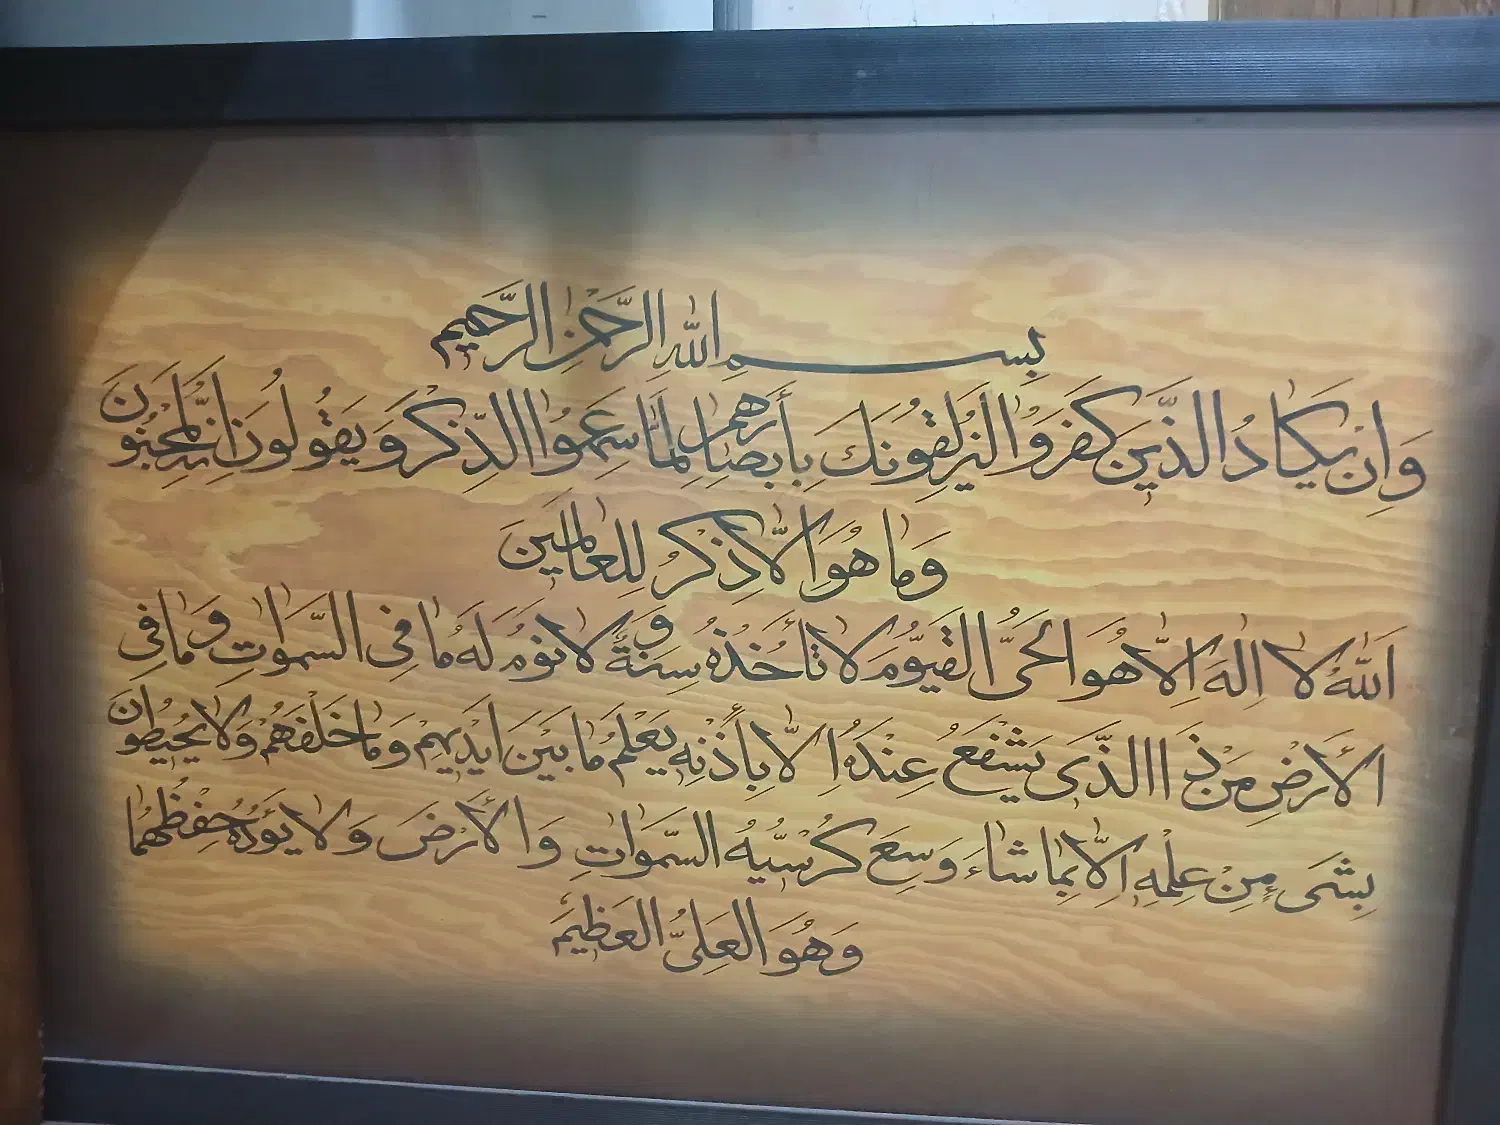 بِسمِ اللهِ الرَّحمٰنِ الرَّحیمِ
وَاِن یَكادُ الَّذینَ كَفَرُوا لَیُزلِقُونَكَ بِأَبصارِهِم لَمّا سَمِعُوا الذِّكرَ وَیَقُولُونَ اِنَّهُ لَمَجنُونٌ
وَما هُوَ اِلّا ذِكرٌ لِلعالَمینَ
اَللهُ لا اِلٰهَ اِلّا هُوَ الحَیُّ القَیُّومُ لا تَأخُذُهُ سِنَةٌ وَلا نَومٌ لَهُ ما فِی السَّمٰواتِ وَما فِی
الأَرضِ مَن ذَا الَّذی یَشفَعُ عِندَهُ اِلّا بِأِذنِهِ یَعلَمُ ما بَینَ اَیدیهِم وَما خَلفَهُم وَلا یُحیطُونَ
بِشَیءٍ مِن عِلمِهِ اِلّا بِما شاءَ وَسِعَ كُرسِیُّهُ السَّمٰواتِ وَالأَرضَ وَلا یَؤُدُهُ حِفظُهُما
وَهُوَ العَلِیُّ العَظیمُ